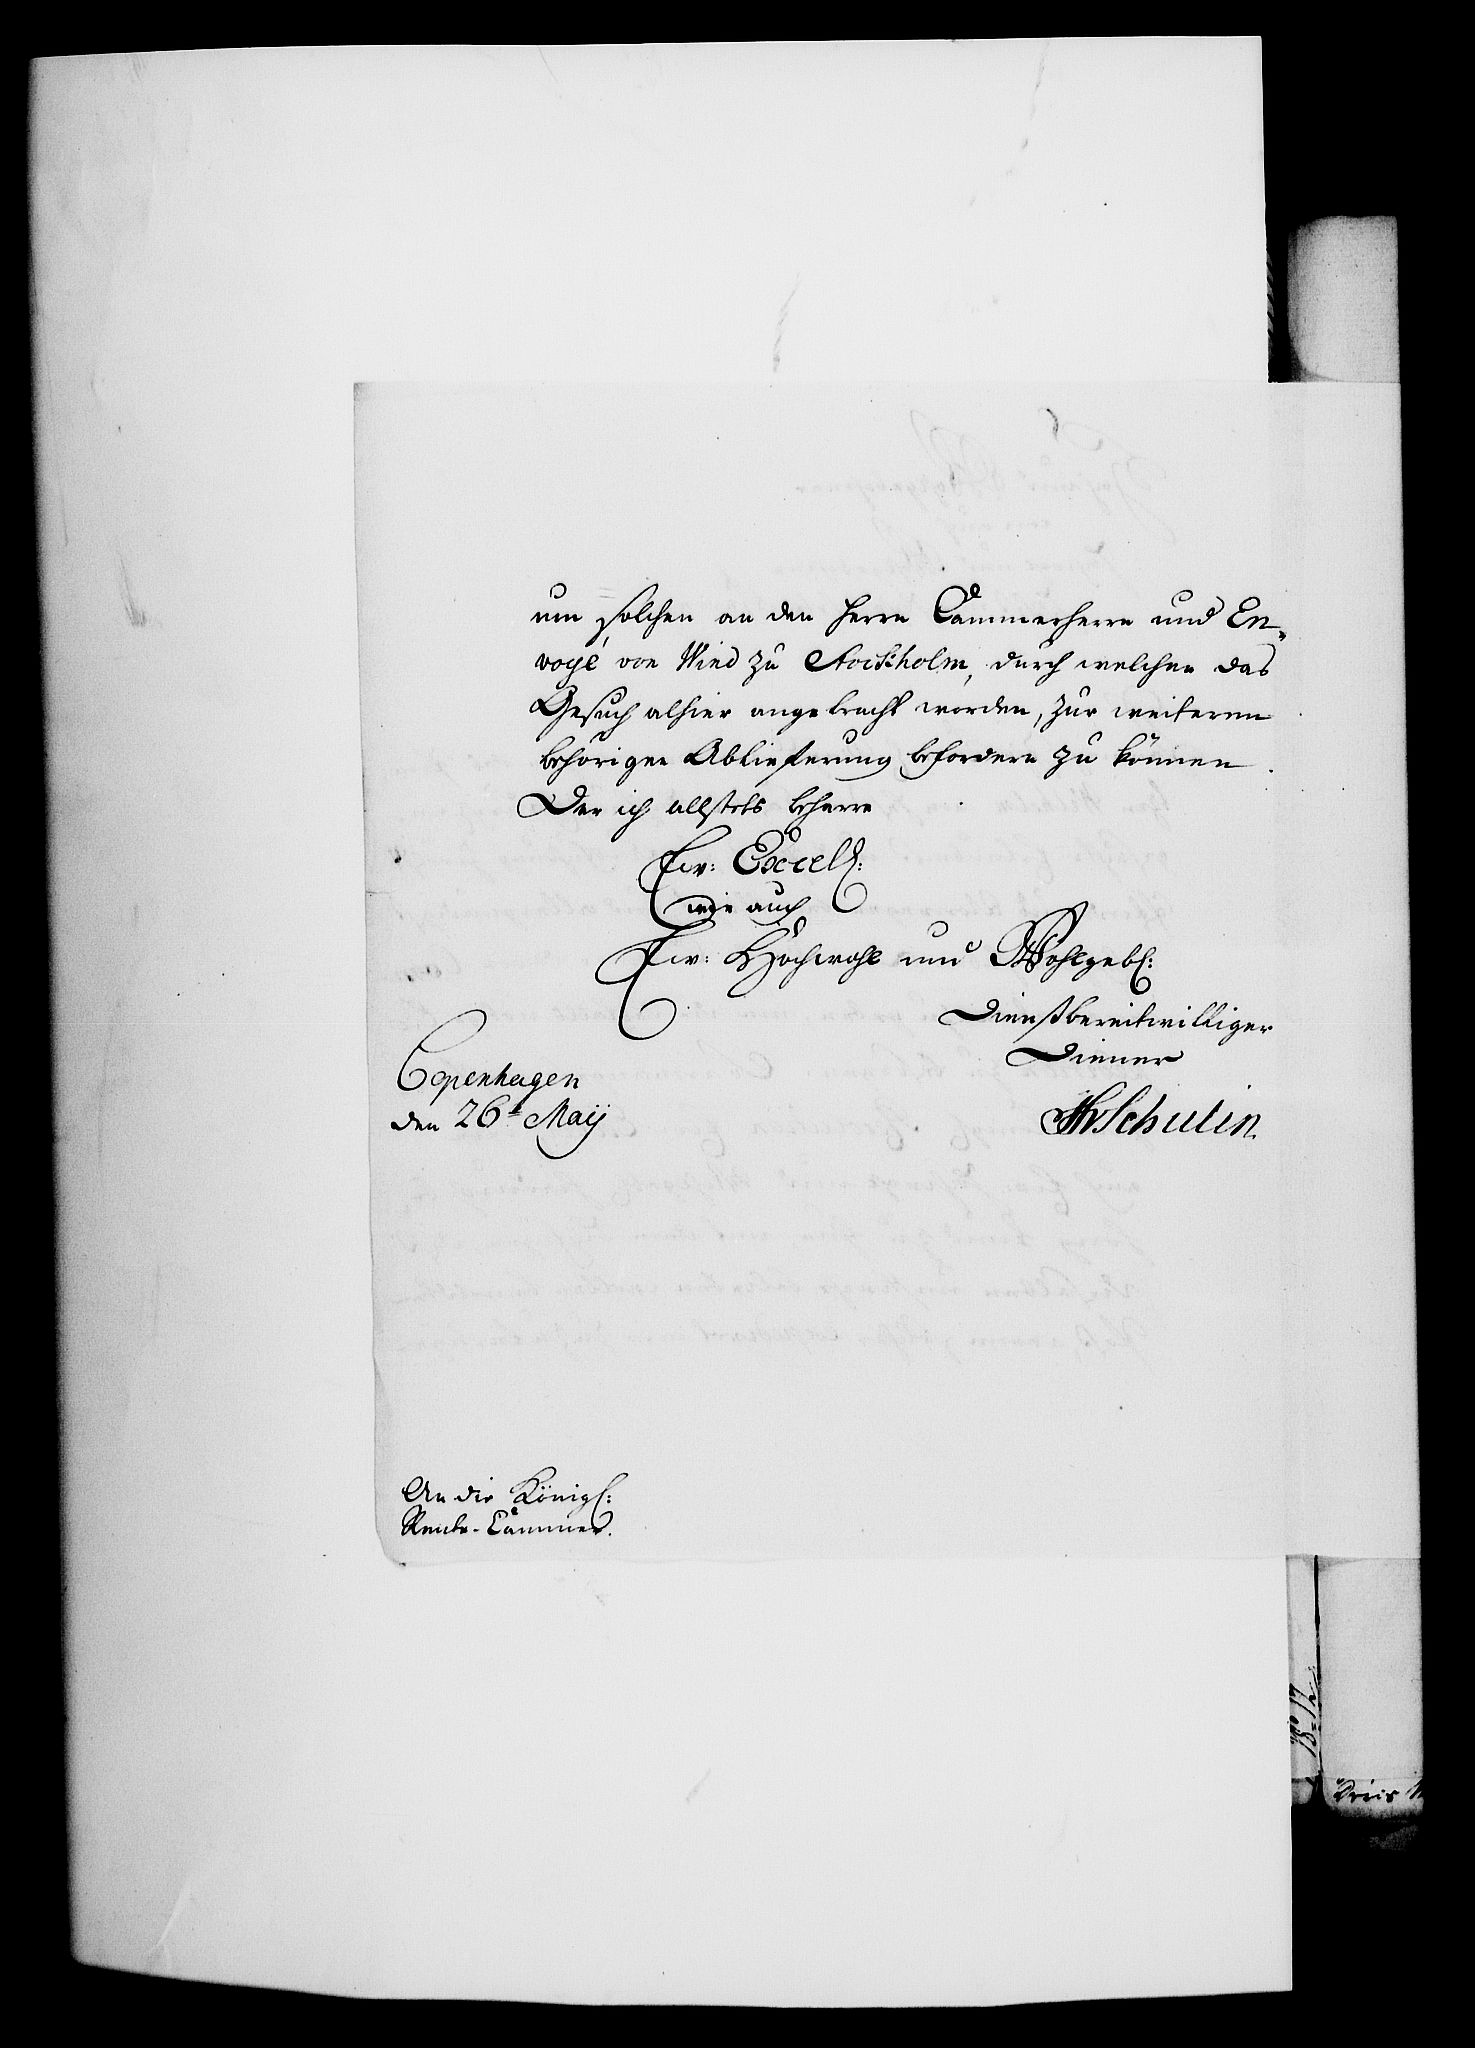 um solchen an den Herrn Cammerherrn und En-
voyé von Wind zu Stockholm, durch welchen das
Gesuch alhier angebracht worden, zur weiteren
behörigen Ablieferung befordern zu können.
Der ich allstets beharre
Ew: Excell:
wie auch
Ew: Hochwohl und Wohlgebl:
Dienstbereitwilliger
Diener
Copenhagen
den 26t Maij
JHvSchulin.
An die Königl:
Rente-Cammer.
No 17